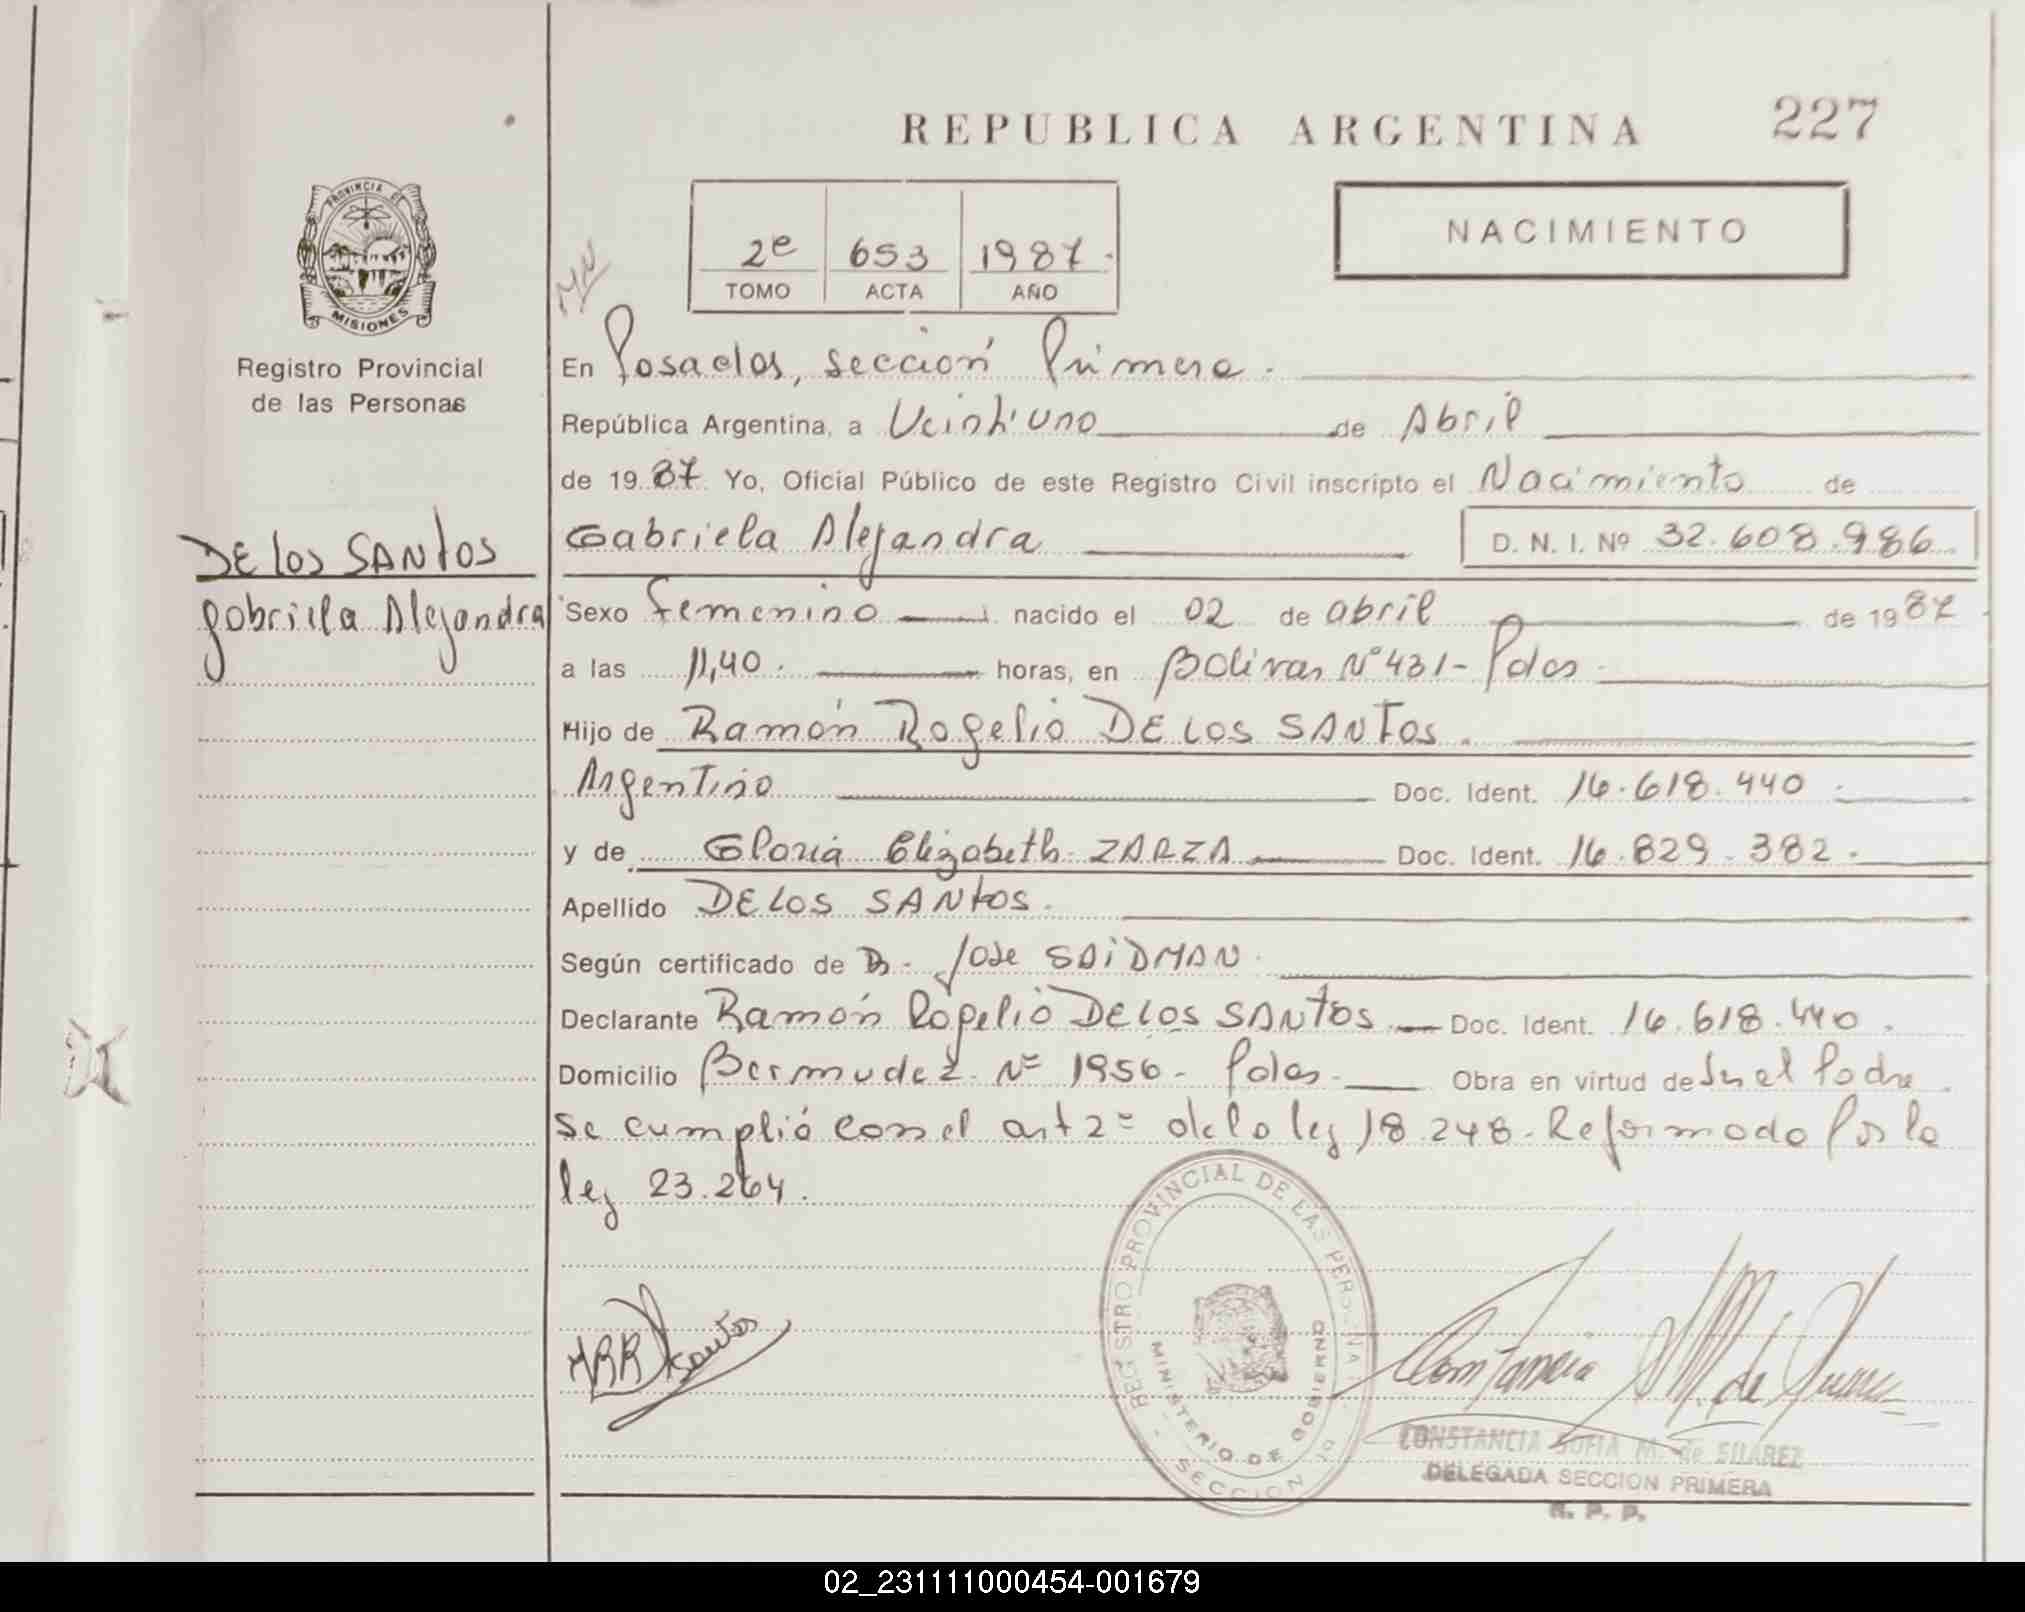 REPUBLICA ARGENTINA
227
PROVINCIA DE
MISIONES
Registro Provincial
de las Personas
2e 653 1987.
TOMO ACTA AÑO
NACIMIENTO
En Posadas, sección Primera.
República Argentina, a Veintiuno de Abril
de 1987. Yo, Oficial Público de este Registro Civil inscripto el Nacimiento de
DE los SANtos
Gabriela Alejandra
Gabriela Alejandra D. N. I. Nº 32.608.986
Sexo Femenino nacido el 02 de abril de 1987
a las 11,40. horas, en Bolivar Nº 431- Pdas.
Hijo de Ramón Rogelio DE LOS SANTOS.
Argentino Doc. Ident. 16.618.440
y de Gloria Elizabeth ZARZA Doc. Ident. 16.829.382.
Apellido DE LOS SANtos.
Según certificado de Dr. Jose SAIDMAN.
Declarante Ramón Rogelio DE LOS SANtos Doc. Ident. 16.618.440.
Domicilio Bermudez Nº 1956- Pdas. Obra en virtud de Ser el Padre.
Se cumplió con el art 2º de la ley 18.248- Reformada Por la
ley 23.264.
REGISTRO PROVINCIAL DE LAS PERSONAS
MINISTERIO DE GOBIERNO
SECCION 1a
Constancia de Suarez
CONSTANCIA SOFIA M. de SUAREZ
DELEGADA SECCION PRIMERA
R. P. P.
02_231111000454-001679